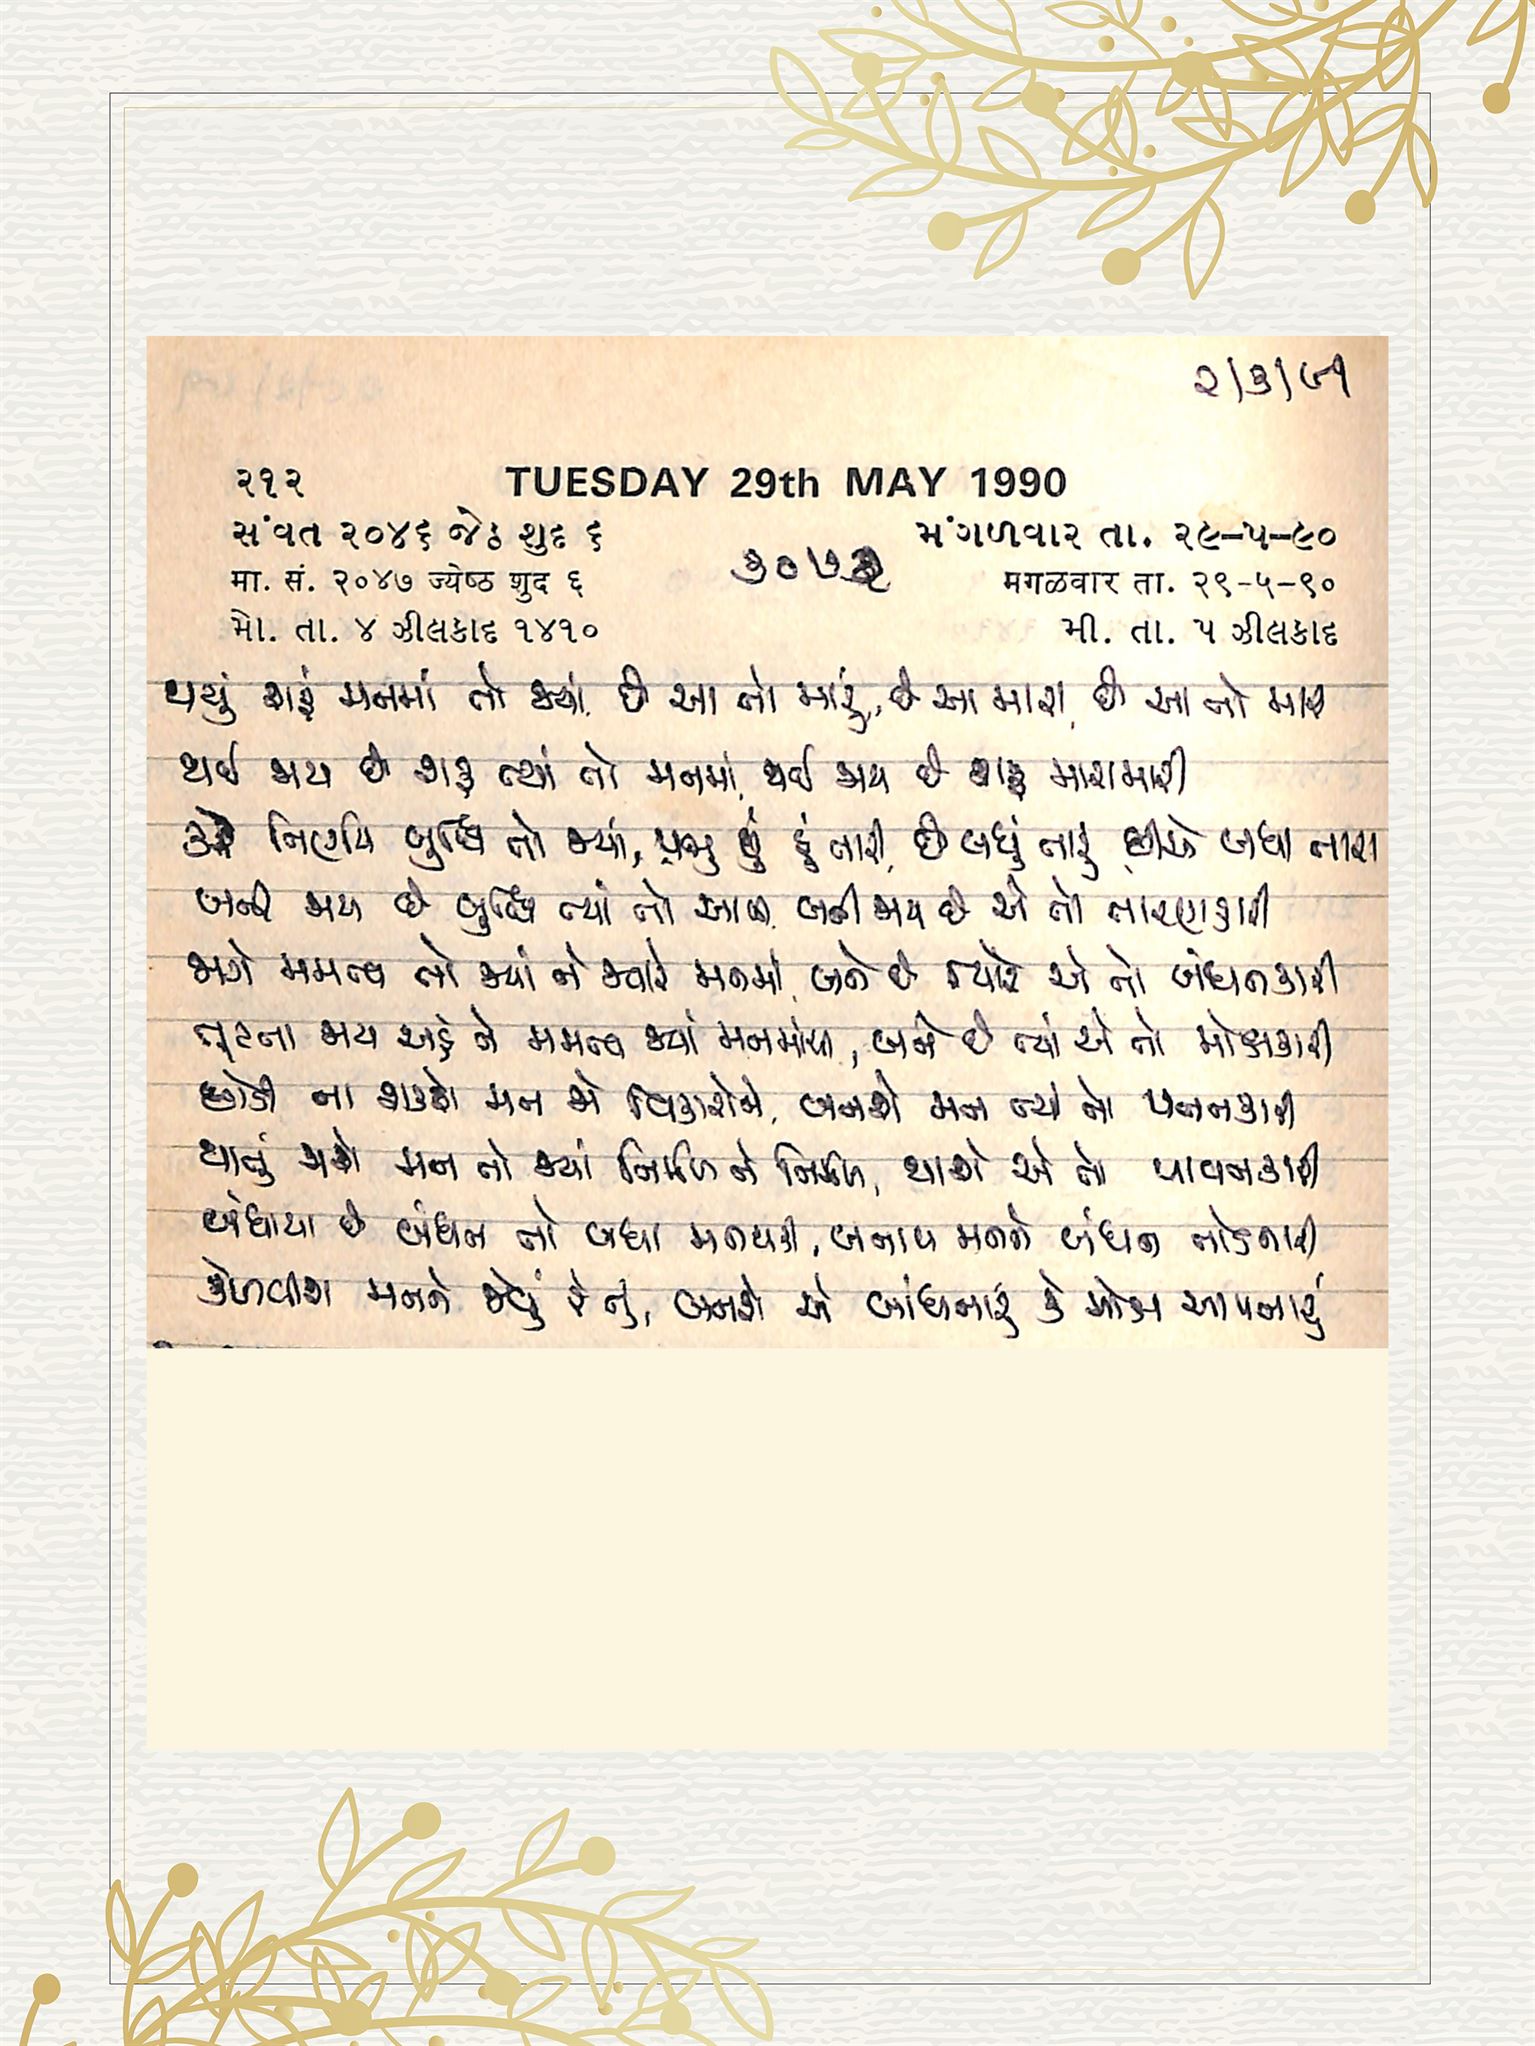 ૨/૩/૯૧
૨૧૨ TUESDAY 29th MAY 1990
સંવત ૨૦૪૬ જેઠ શુદ ૬ મંગળવાર તા. ૨૯-૫-૯૦
૩૦૭૨
मा. सं. २०४७ ज्येष्ठ शुद ६ मगळवार ता. २९-५-९०
મો. તા. ૪ ઝીલકાદ ૧૪૧૦ મી. તા. ૫ ઝીલકાદ
થયું શરૂ મનમાં તો જ્યાં, છે આ તો મારું, છે આ મારા, છે આ તો મારી
થઈ જાય છે શરૂ ત્યાં તો મનમાં, થઈ જાય છે શરૂ મારામારી
કરે નિર્ણય બુદ્ધિ તો જ્યાં, પ્રભુ છું હું તારી, છે બધું તારું છીએ બધા તારા
બની જાય છે બુદ્ધિ ત્યાં તો બની જાય છે એ તો તારણકારી
જાગે મમત્વ તો જ્યાં ને જ્યારે મનમાં, બને છે ત્યારે એ તો બંધનકારી
તૂટતા જાય અહં ને મમત્વ જ્યાં મનમાંથી, બને છે ત્યાં એ તો મોક્ષકારી
છોડી ના શકશે મન જો વિકારોને, બનશે મન ત્યાં તો પતનકારી
થાતું જાશે મન તો જ્યાં નિર્મળ ને નિર્મળ, થાશે એ તો પાવનકારી
બંધાયા છે બંધન તો બધા મનથકી, બનાવ મનને બંધન તોડનારી
કેળવીશ મનને જેવું રે તું, બનશે એ બાંધનારું કે મોક્ષ આપનારું